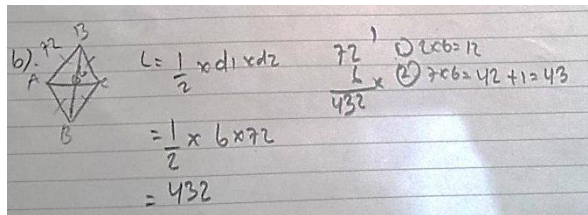 b). 72 B
A C
B
L = 1/2 x d1 x d2
= 1/2 x 6 x 72
= 432
72 1
6 x
432
① 2x6=12
② 7x6=42+1=43